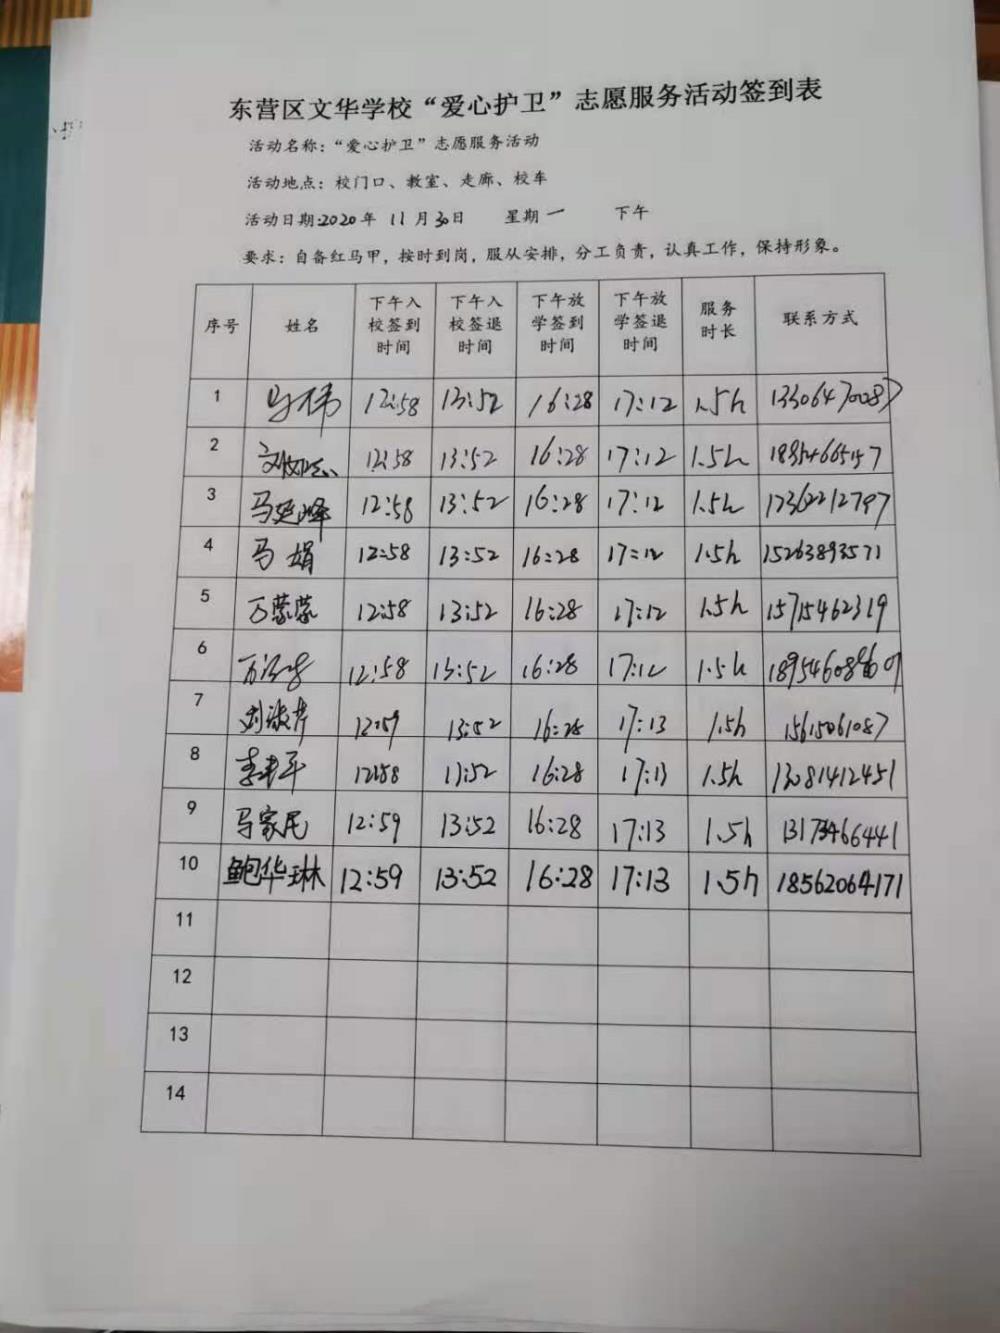 东营区文华学校“爱心护卫”志愿服务活动签到表
活动名称：“爱心护卫”志愿服务活动
活动地点：校门口、教室、走廊、校车
活动日期:2020年 11月30日 星期一 下午
要求：自备红马甲，按时到岗，服从安排，分工负责，认真工作，保持形象。
序号 姓名 下午入校签到时间 下午入校签退时间 下午放学签到时间 下午放学签退时间 服务时长 联系方式
1 马伟 12:58 13:52 16:28 17:12 1.5h 13306470087
2 12:58 13:52 16:28 17:12 1.5h
3 马延峰 12:58 13:52 16:28 17:12 1.5h
4 马娟 12:58 13:52 16:28 17:12 1.5h 15263893571
5 万蒙蒙 12:58 13:52 16:28 17:12 1.5h 15715462319
6 12:58 13:52 16:28 17:12 1.5h
7 刘淑芹 12:59 13:52 16:28 17:13 1.5h 15615061087
8 12:58 13:52 16:28 17:13 1.5h 13081412451
9 马家民 12:59 13:52 16:28 17:13 1.5h
10 鲍华琳 12:59 13:52 16:28 17:13 1.5h 18562064171
11
12
13
14